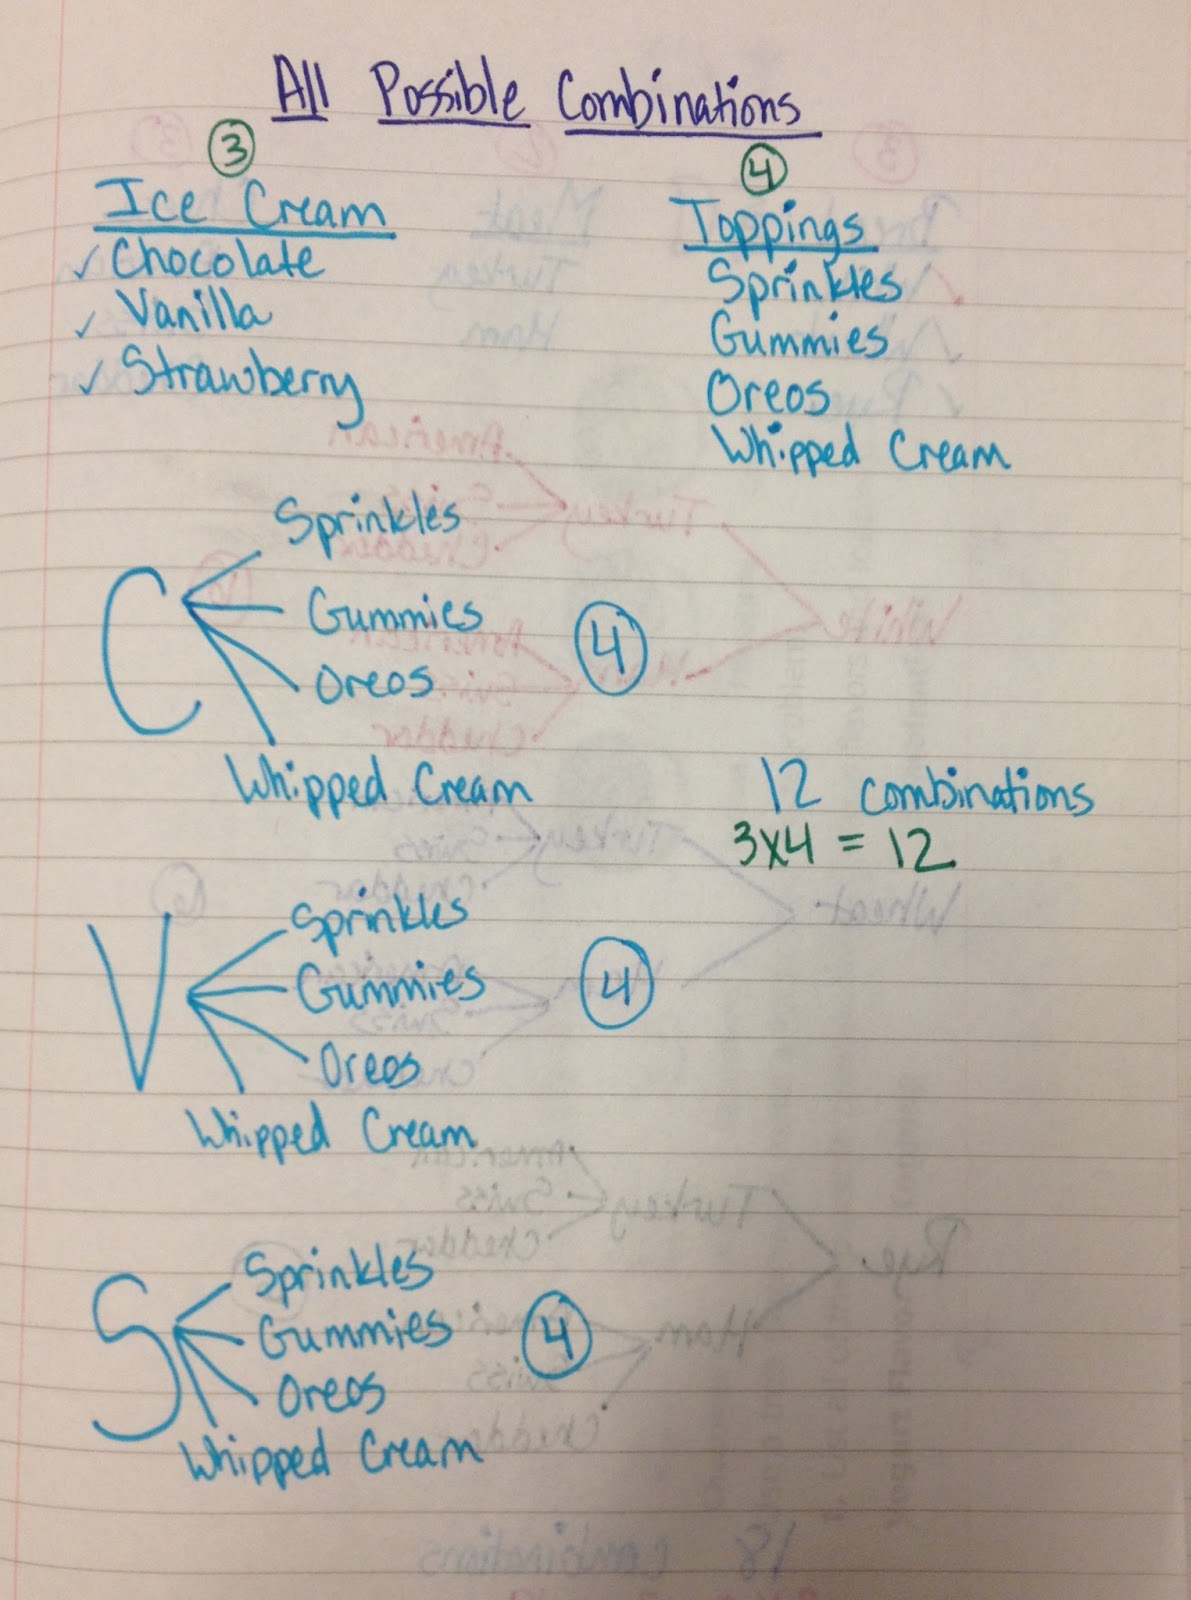 All Possible Combinations
3
Ice Cream
✓ Chocolate
✓ Vanilla
✓ Strawberry
4
Toppings
Sprinkles
Gummies
Oreos
Whipped Cream
C
Sprinkles
Gummies
Oreos
Whipped Cream
4
12 combinations
3x4 = 12
V
Sprinkles
Gummies
Oreos
Whipped Cream
4
S
Sprinkles
Gummies
Oreos
Whipped Cream
4